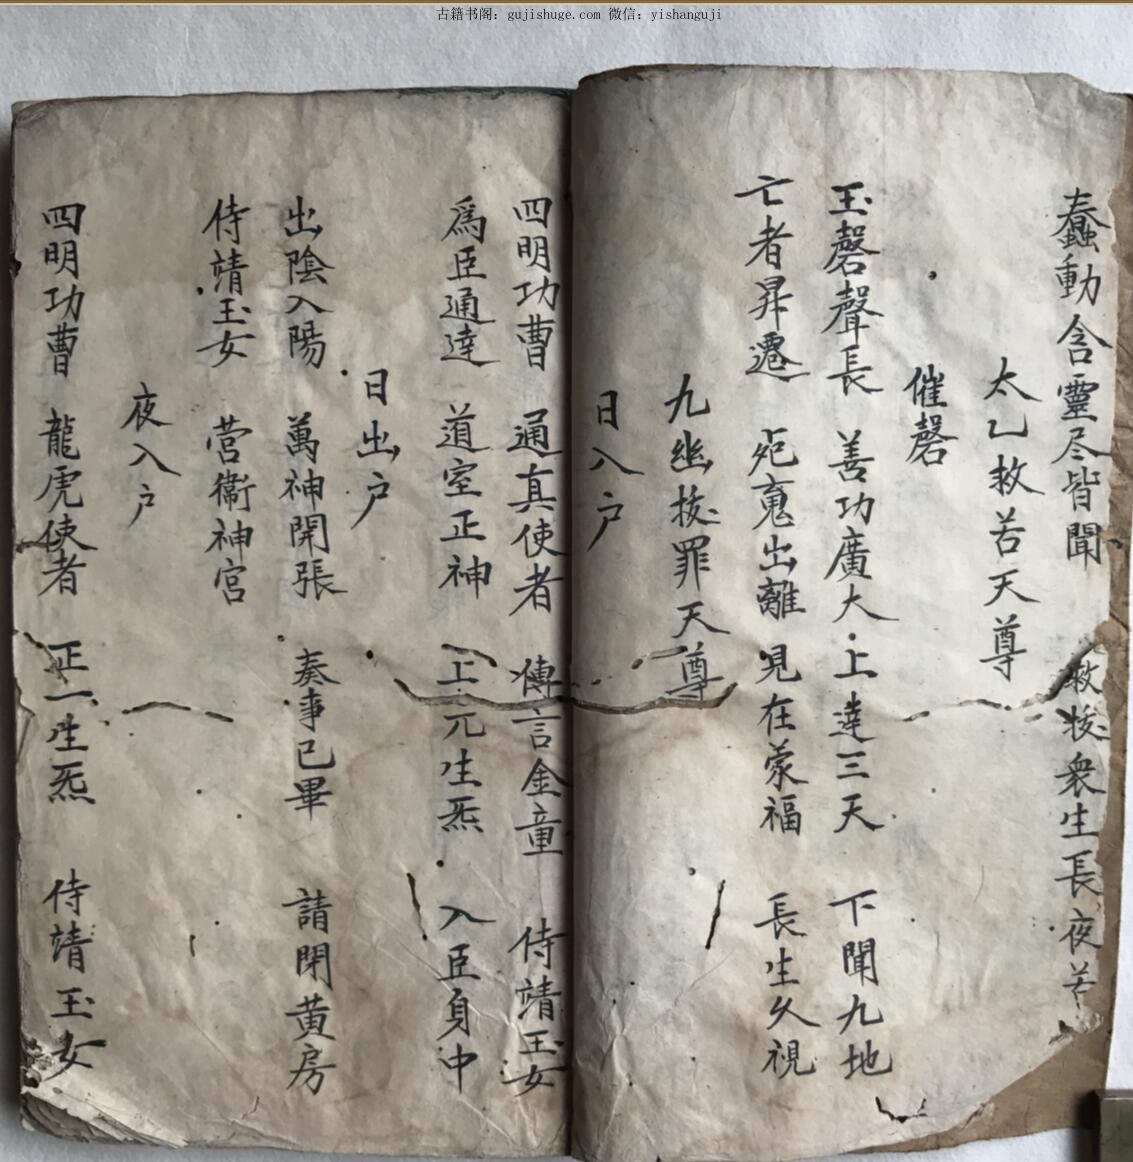 古籍书阁：gujishuge.com 微信：yishanguji
蠢動含靈尽皆聞 救拔衆生長夜苦
太乙救苦天尊
催磬
玉磬聲長 善功廣大 上達三天 下聞九地
亡者昇遷 宛魂出離 見在蒙福 長生久視
九幽拔罪天尊
日入户
四明功曹 通真使者 傳言金童 侍靖玉女
爲臣通達 道室正神 上元生炁 入臣身中
日出户
出陰入陽 萬神開張 奏事已畢 請閉黄房
侍靖玉女 营衞神宫
夜入户
四明功曹 龍虎使者 正一生炁 侍靖玉女